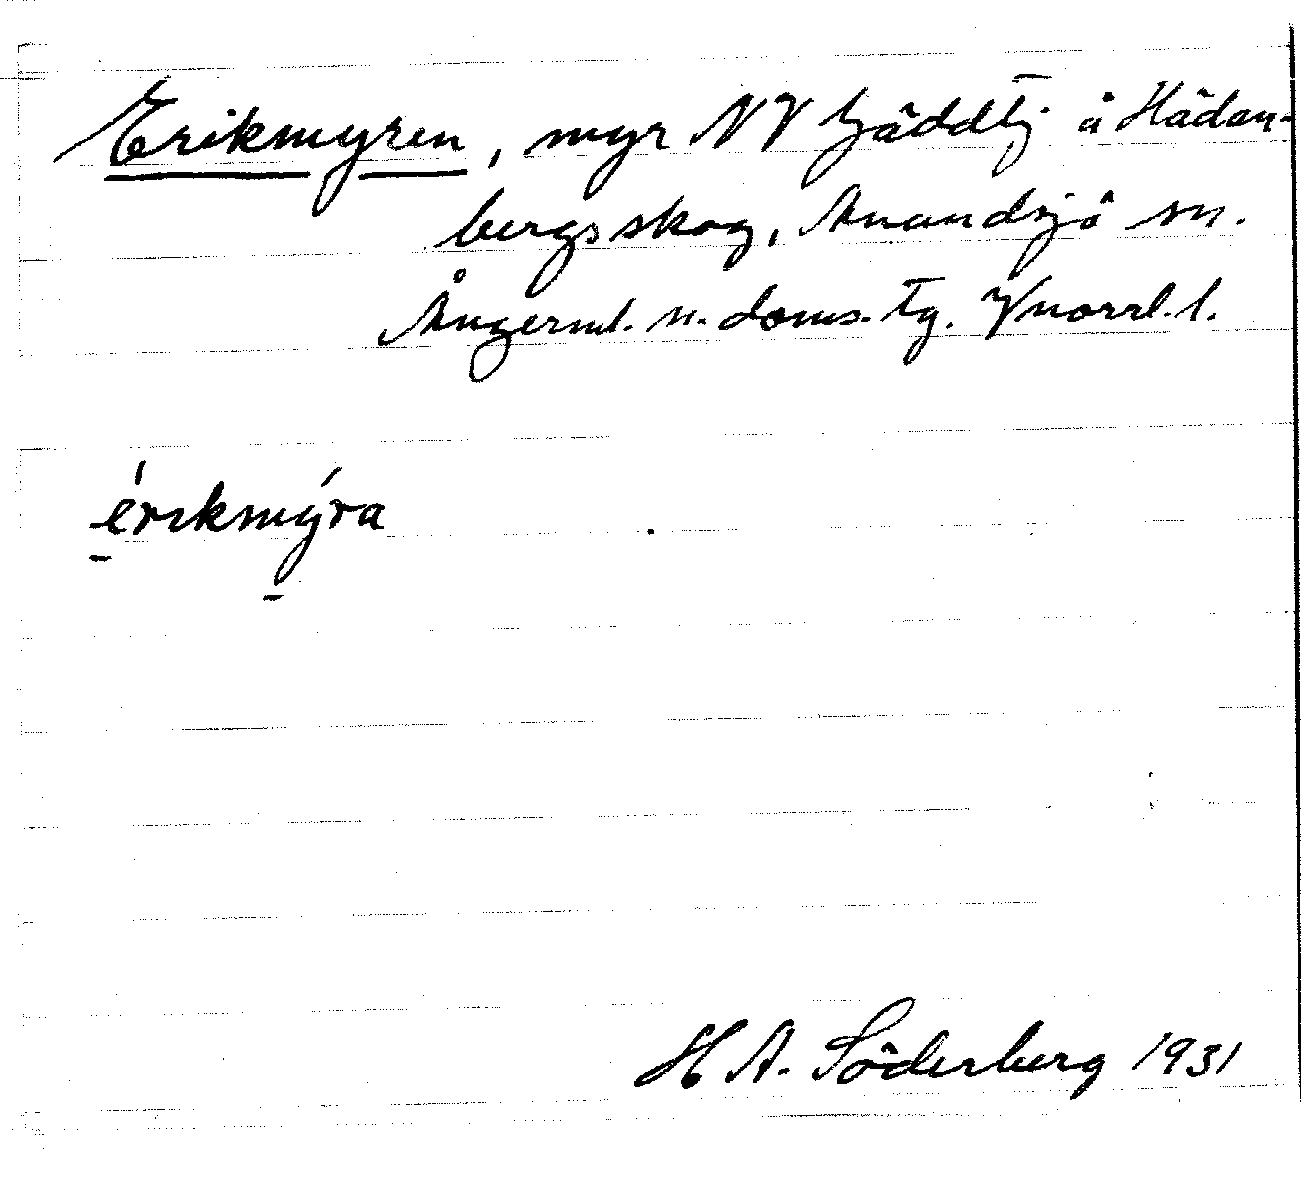 Erikmyren, myr NV Gäddtj. å Hädan-
bergsskog, Anundsjö sn.
Ångerml. n. doms. tg. Vnorrl. l.
érıkmýra
H A. Söderberg 1931